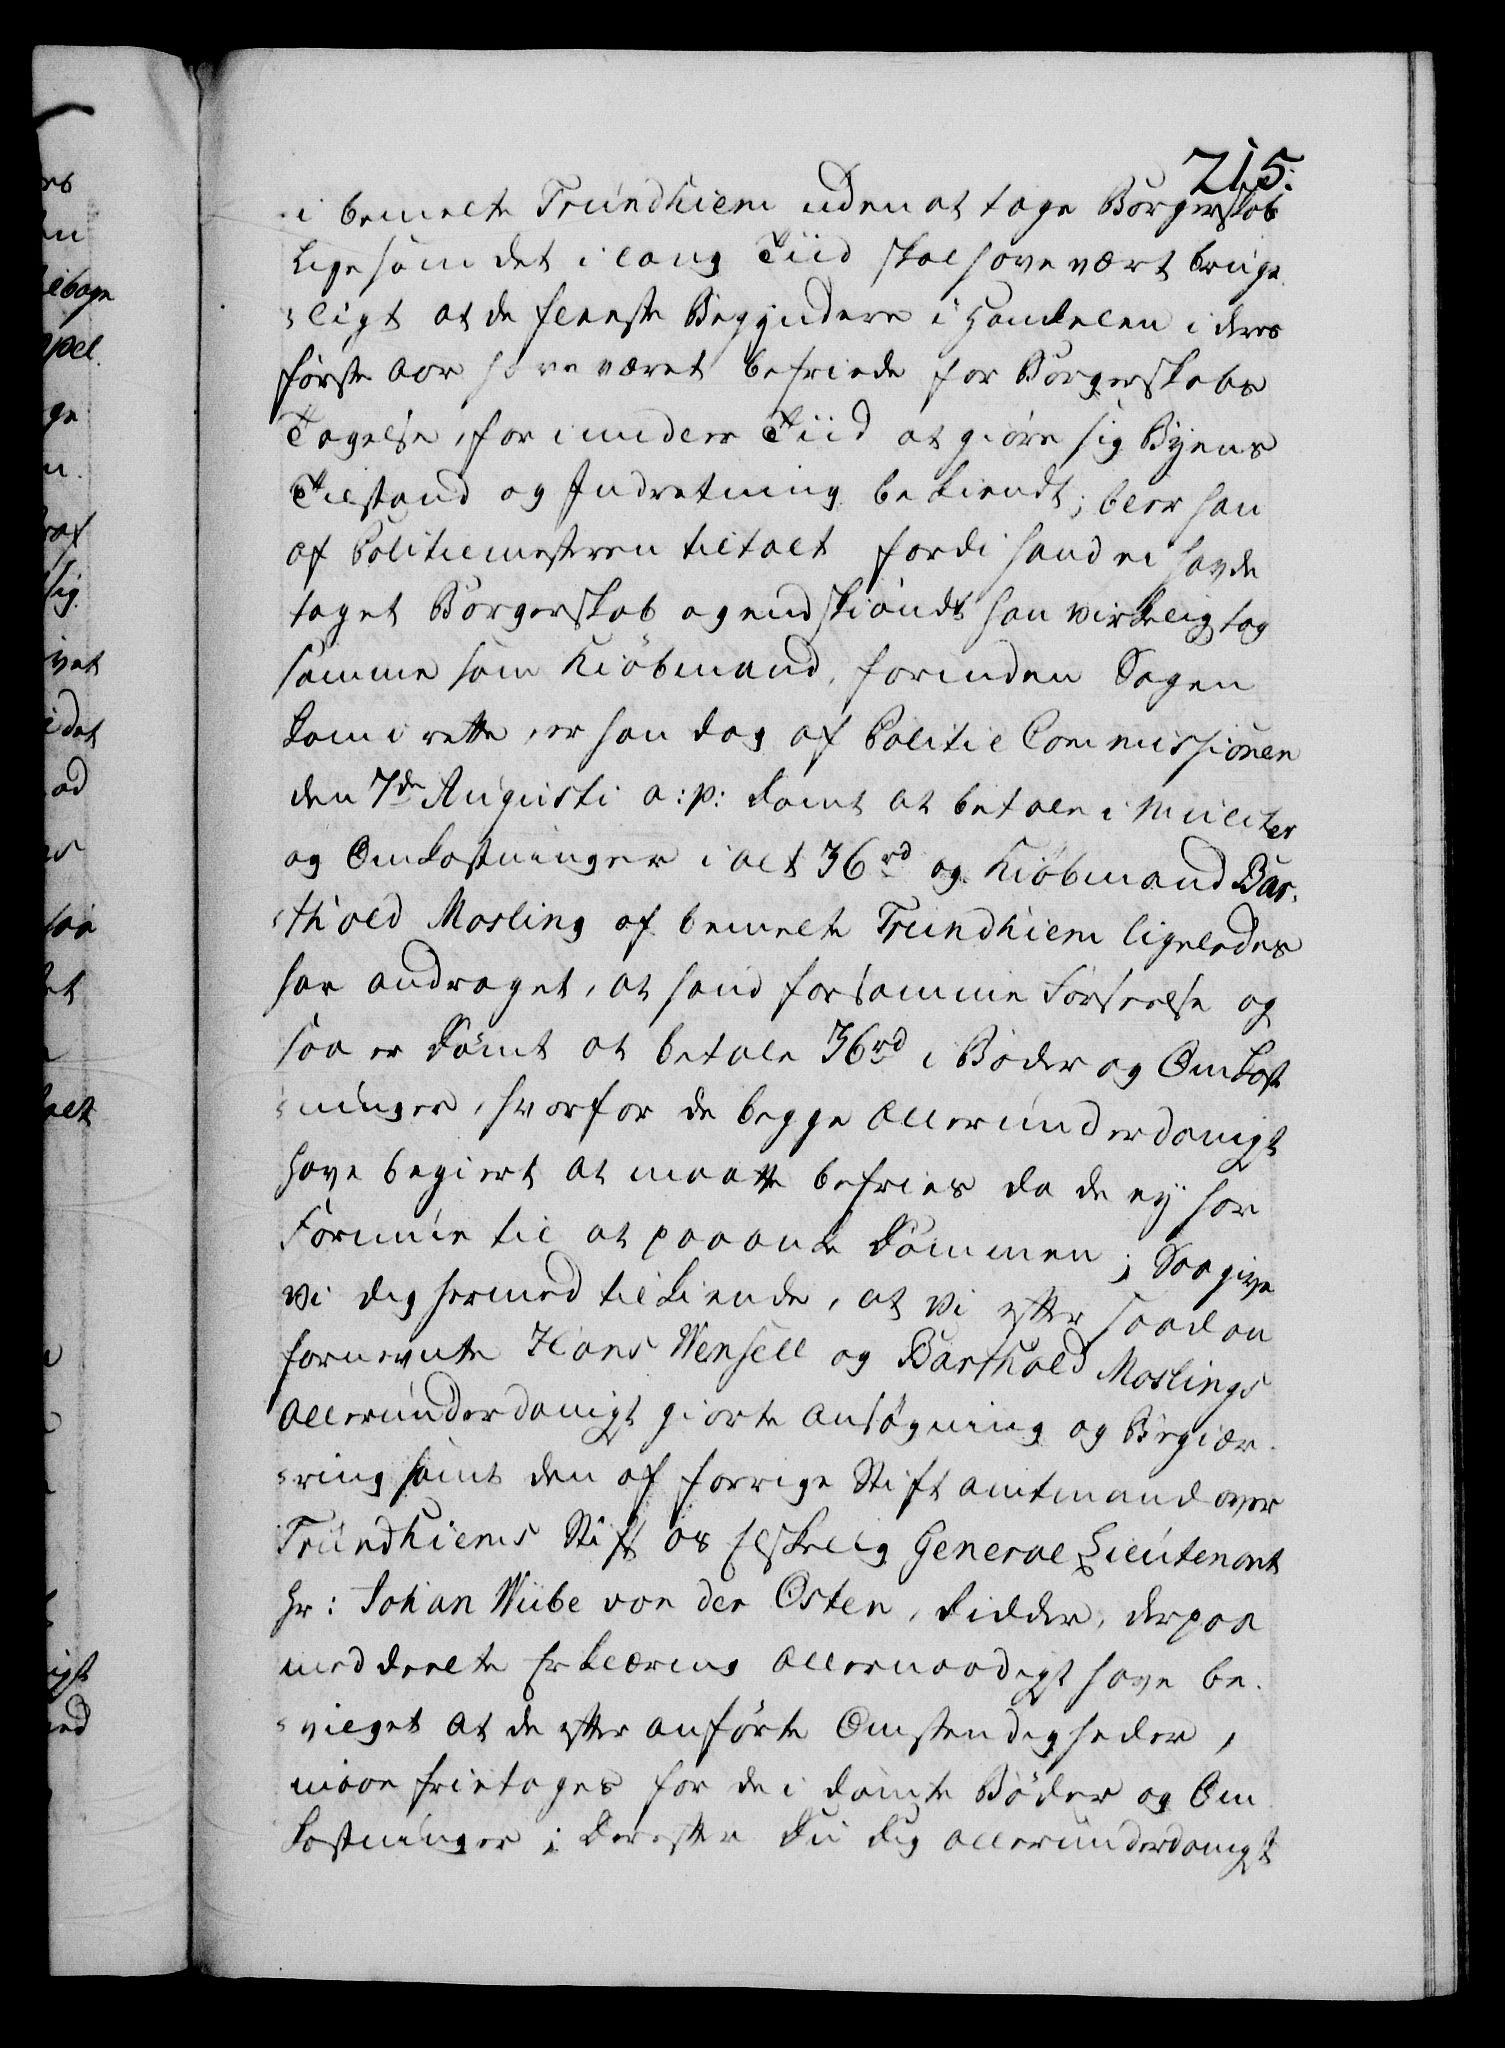 215.
i bemelte Trundhiem uden at tage Borgerskab
Ligesom det i lang Tiid skal have vært bruge
-ligt at de fleeste Begyndere i Handelen i deres
første Aar have været befriede for Borgerskabs
Tagelse, for imidler Tiid at giøre sig Byens
Tilstand og Indretning bekiendt; blev han
af Politiemesteren tiltalt fordi hand ei havde
taget Borgerskab og endskiøndt han virkelig tog
samme som Kiöbmand, forinden Sagen
kom i rette, er han dog af Politie Commissionen
den 7de Augusti a:p: dømt at betale i Mulcter
og Omkostninger i alt 36rd og Kiöbmand Bar,
-thold Mosling af bemelte Trundhiem ligeledes
har andraget, at hand for samme Forseelse og
saa er dømt at betale 36rd i Bøder og Omkost
-ninger, hvorfor de begge allerunderdanigst
have begiert at maatte befries da de ey har
Formue til at paaanke Dommen; Saa give
Vi dig hermed tilkiende, at Vi efter saadan
fornevnte Hans Wensell og Barthold Moslings
allerunderdanigst giorte Ansøgning og Begiæ-
-ring samt den af forrige Stiftamtmand over
Trundhiems Stift os Elskelig General Lieutenant
Hr: Johan Wibe von der Osten, Ridder, derpaa
meddeelte Erklæring allernaadigst have be-
-vilget at de efter anførte Omstendigheder,
maae fritages for de i dømte Bøder og Om
kostninger; Derefter Du dig allerunderdanigst